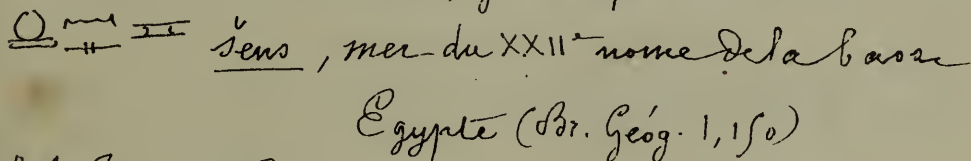 šens, mer du XXIIe nome de la basse
Egypte (Br. Géog. 1,150)